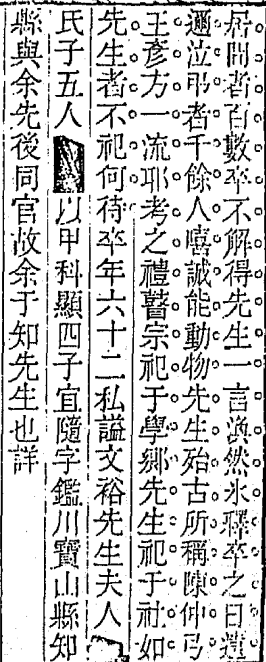 居間者百數卒不解得先生一言渙然氷釋卒之日遠
邇泣弔者千餘人嘻誠能動物先生殆古所稱陳仲弓
王彥方一流耶考之禮瞽宗祀于學鄉先生祀于社如
先生者不祀何待卒年六十二私謚文裕先生夫人
氏子五人以甲科顯四子宜隨字鑑川寶山縣知
縣與余先後同官故余于知先生也詳